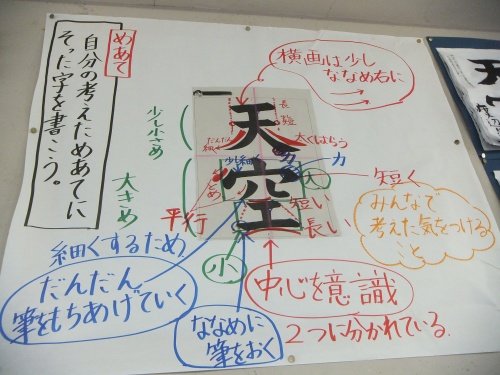 めあて
自分の考えためあてに
そった字を書こう。
横画は少し
ななめ右に
少し小さめ
大きめ
天
空
長
短
だんだん
細く
太くはらう
少し細く
力
止める
大
短く
短い
長い
平行
小
みんなで
考えた気をつける
こと
細くするため
だんだん
筆をもちあげていく
中心を意識
ななめに
筆をおく
2つに分かれている.
天
空